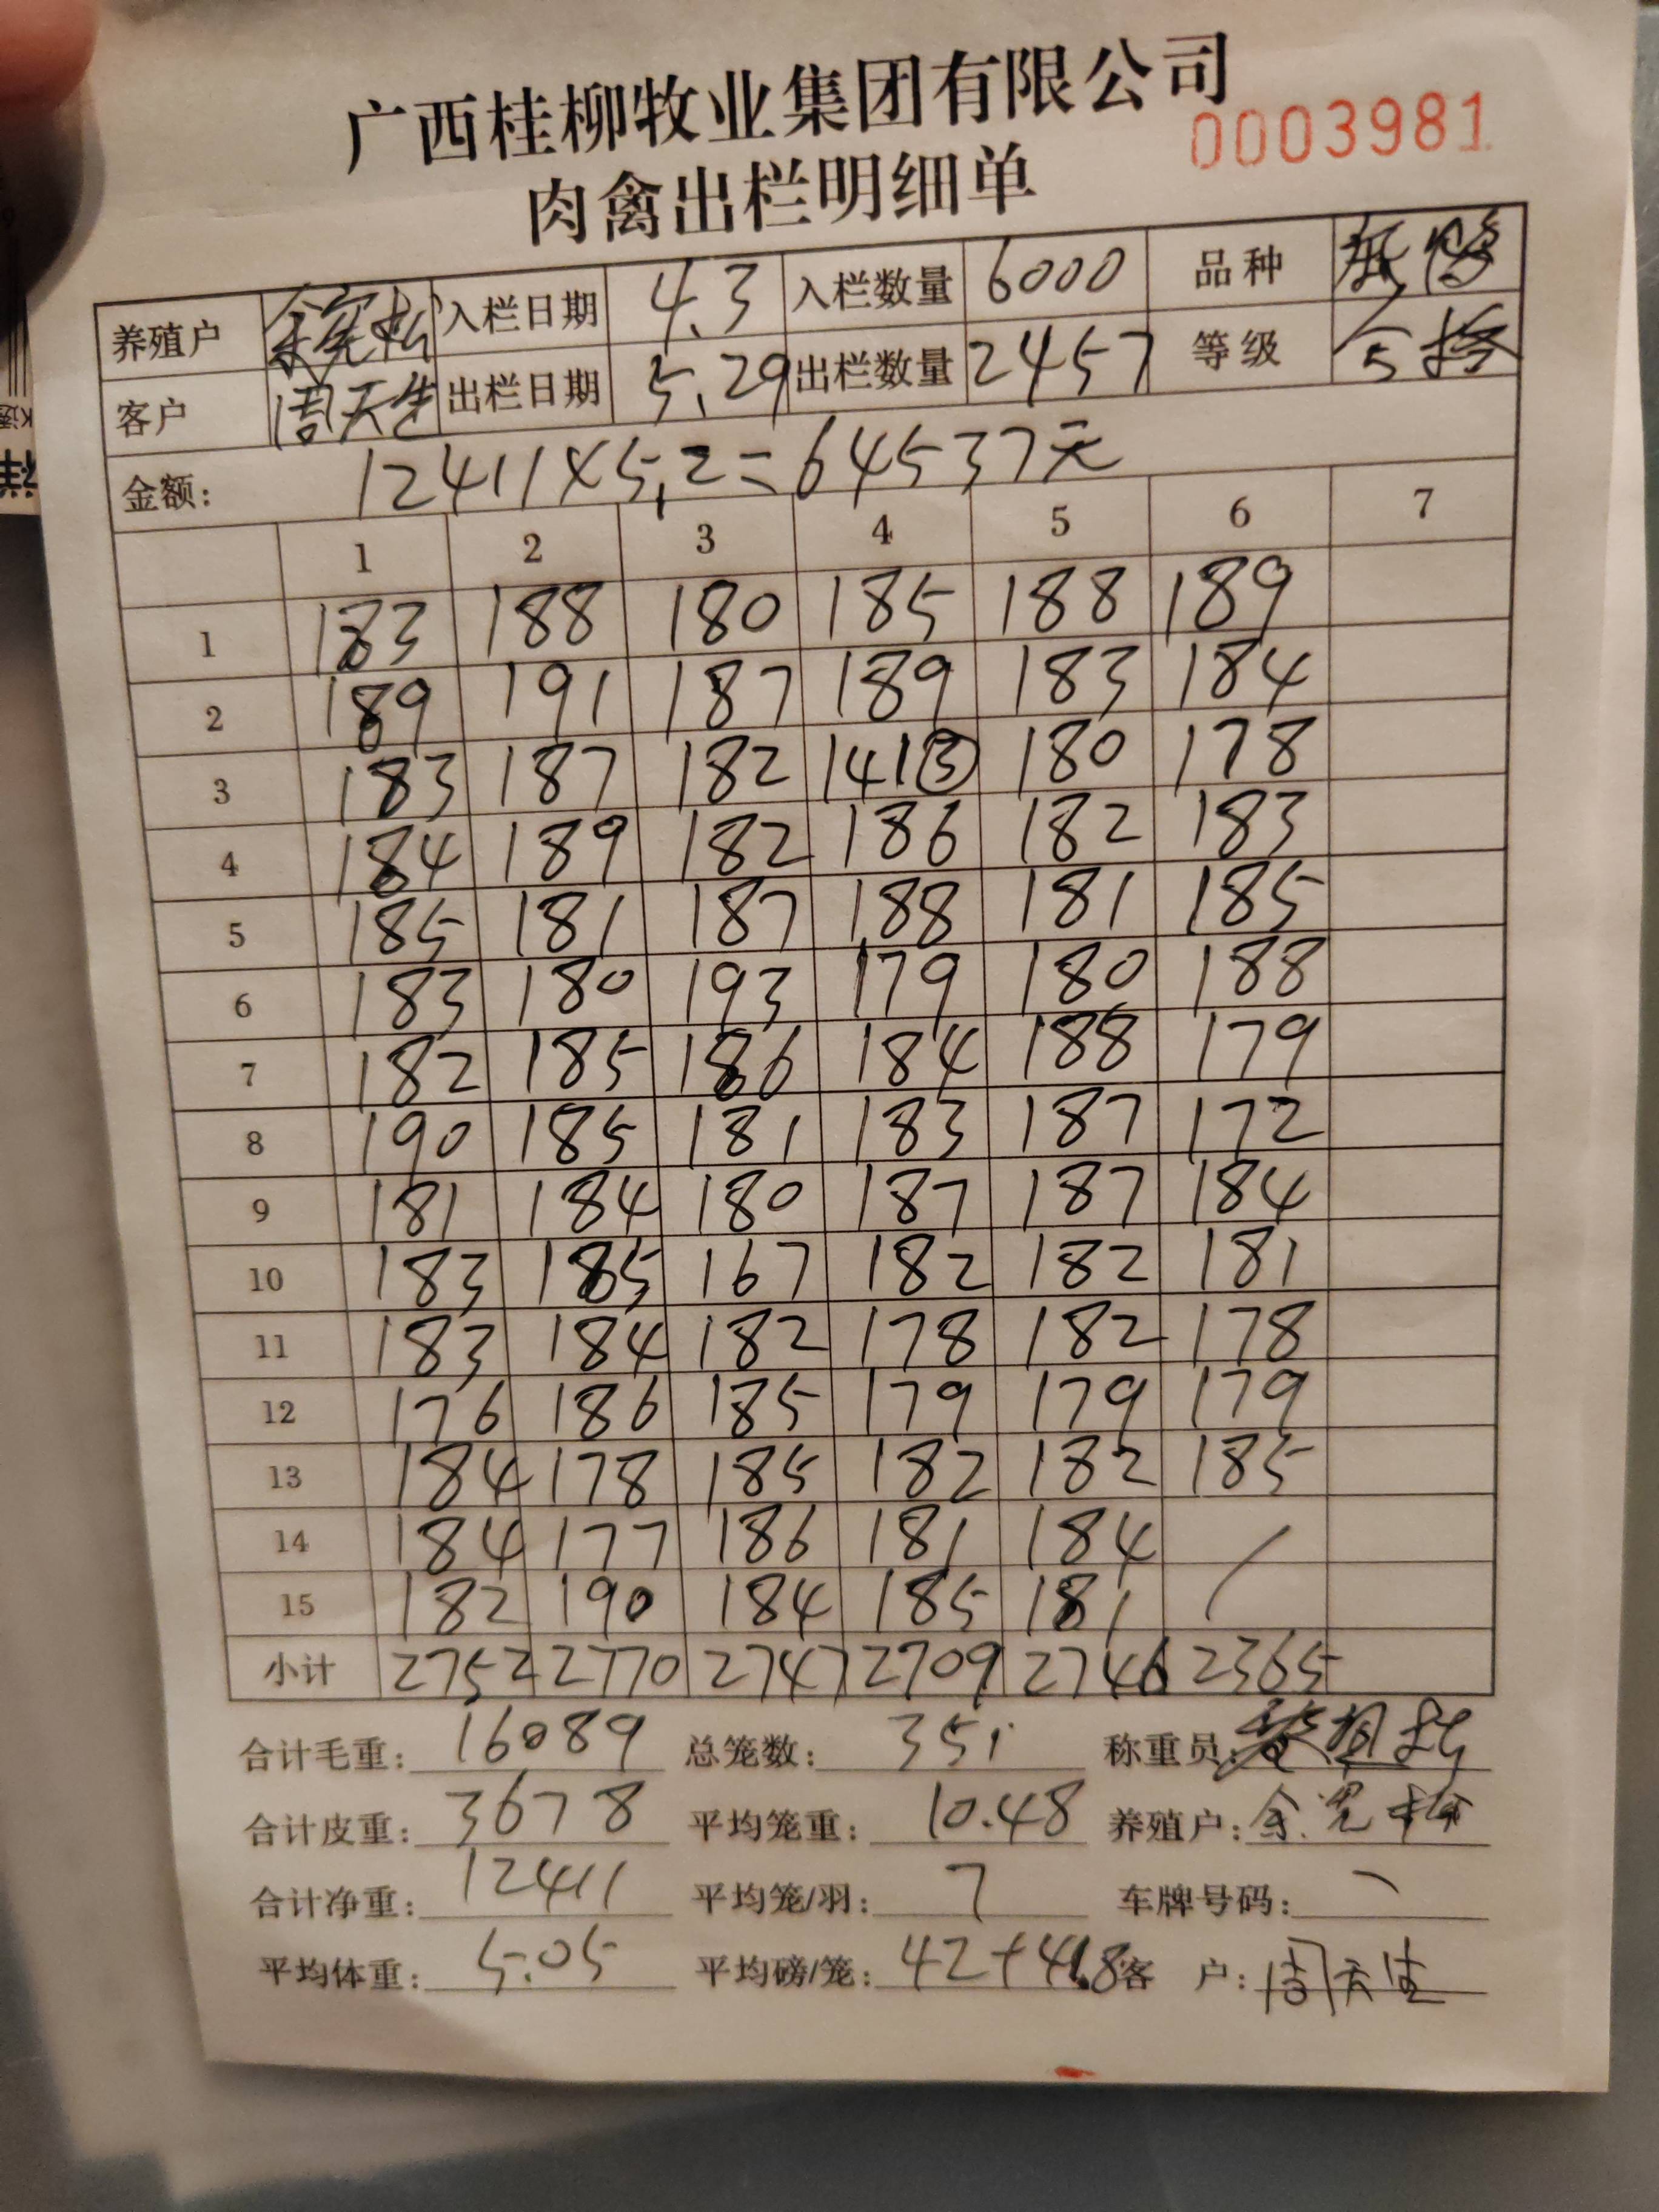 广西桂柳牧业集团有限公司
0003981
肉禽出栏明细单
养殖户 余宪松 入栏日期 4.3 入栏数量 6000 品种
客户 周天生 出栏日期 5.29 出栏数量 2457 等级 合格
金额: 12411×5.2=64537元
1 2 3 4 5 6 7
1 183 188 180 185 188 189
2 189 191 187 189 183 184
3 183 187 182 141③ 180 178
4 184 189 182 186 182 183
5 185 181 187 188 181 185
6 183 180 193 179 180 188
7 182 185 186 184 188 179
8 190 185 181 183 187 172
9 181 184 180 187 187 184
10 183 185 167 182 182 181
11 183 184 182 178 182 178
12 176 186 185 179 179 179
13 184 178 185 182 182 185
14 184 177 186 181 184 /
15 182 190 184 185 181 /
小计 2752 2770 2747 2709 2746 2365
合计毛重: 16089 总笼数: 351 称重员:
合计皮重: 3678 平均笼重: 10.48 养殖户: 余宪松
合计净重: 12411 平均笼/羽: 7 车牌号码:
平均体重: 5.05 平均磅/笼: 42+41.8 客 户: 周天生